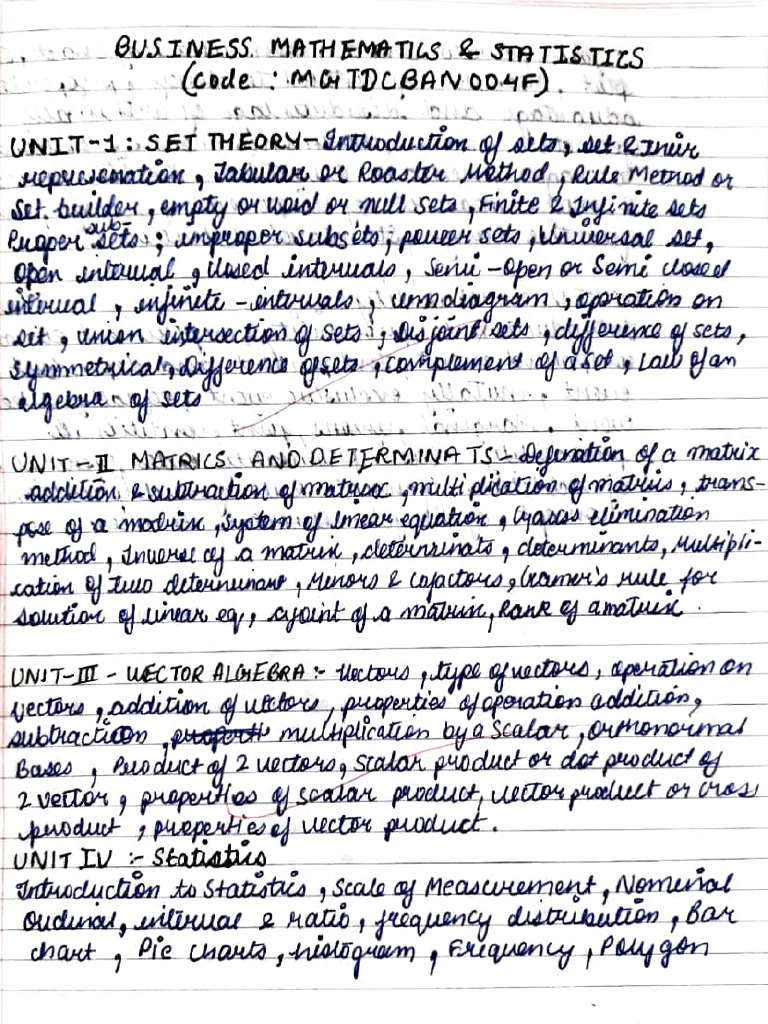 BUSINESS MATHEMATICS & STATISTICS
(Code : MGTDCBAN004F)
UNIT-1 : SET THEORY- Introduction of sets, set & their
representation, Tabular or Roaster Method, Rule Method or
Set builder, empty or void or null sets, Finite & Infinite sets
Proper subsets; improper subsets, power sets, Universal set,
Open interval, closed intervals, Semi-Open or Semi closed
interval, infinite-intervals, venn diagram, operation on
set, union intersection of sets, Disjoint sets, difference of sets,
Symmetrical, Difference of sets, complement of a set, Law of an
algebra of sets
UNIT-II MATRICS AND DETERMINATS - Defination of a matrix
addition & subtraction of matrix, multiplication of matris, trans-
pose of a matrix, System of linear equation, Gauss elimination
method, Inverse of a matrix, deternrinats, determinants, Multipli-
cation of two determinant, Minors & Cofactors, Cramer's rule for
solution of linear eq., of a matrix, Rank of a matrix.
UNIT-III - VECTOR ALGEBRA :- Vectors, type of vectors, operation on
vectors, addition of vectors, properties of operation addition,
subtraction, multiplication by a Scalar, Orthonormal
Bases, Product of 2 vectors, Scalar product or dot product of
2 vector, properties of scalar product, vector product or cross
product, properties of vector product.
UNIT IV :- Statistics
Introduction to Statistics, Scale of Measurement, Nominal
Ordinal, interval & ratio, frequency distribution, Bar
chart, Pie charts, histogram, Frequency, Polygon